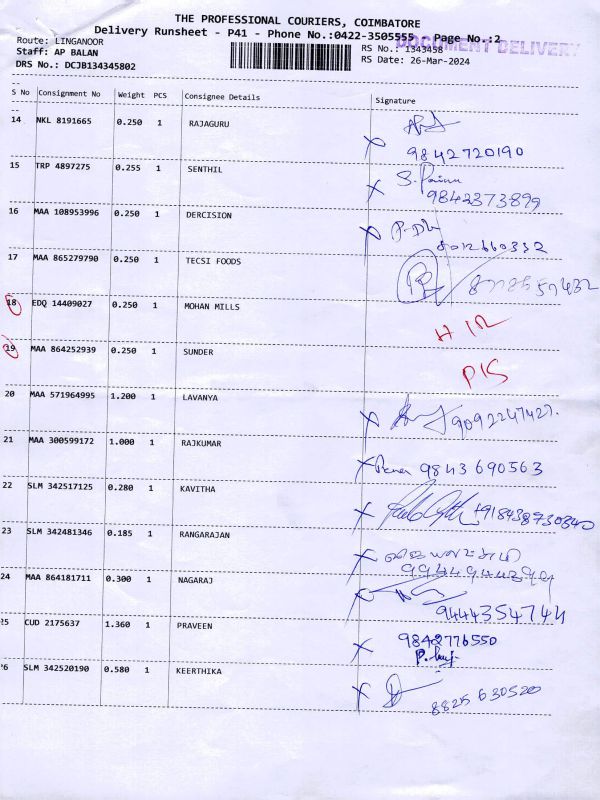 THE PROFESSIONAL COURIERS, COIMBATORE
Delivery Runsheet - P41 - Phone No.:0422-3505555 Page No.:2
DOCUMENT DELIVERY
Route: LINGANOOR RS No.: 1343458
Staff: AP BALAN RS Date: 26-Mar-2024
DRS No.: DCJB134345802
S No Consignment No Weight PCS Consignee Details Signature
14 NKL 8191665 0.250 1 RAJAGURU
9842720190
15 TRP 4897275 0.255 1 SENTHIL
9842373899
16 MAA 108953996 0.250 1 DERCISION
8012660332
17 MAA 865279790 0.250 1 TECSI FOODS
18 EDQ 14409027 0.250 1 MOHAN MILLS
19 MAA 864252939 0.250 1 SUNDER
20 MAA 571964995 1.200 1 LAVANYA
9092247427.
21 MAA 300599172 1.000 1 RAJKUMAR
9843690563
22 SLM 342517125 0.280 1 KAVITHA
23 SLM 342481346 0.185 1 RANGARAJAN
24 MAA 864181711 0.300 1 NAGARAJ
9444354744
25 CUD 2175637 1.360 1 PRAVEEN
9842776550
26 SLM 342520190 0.580 1 KEERTHIKA
8825630520